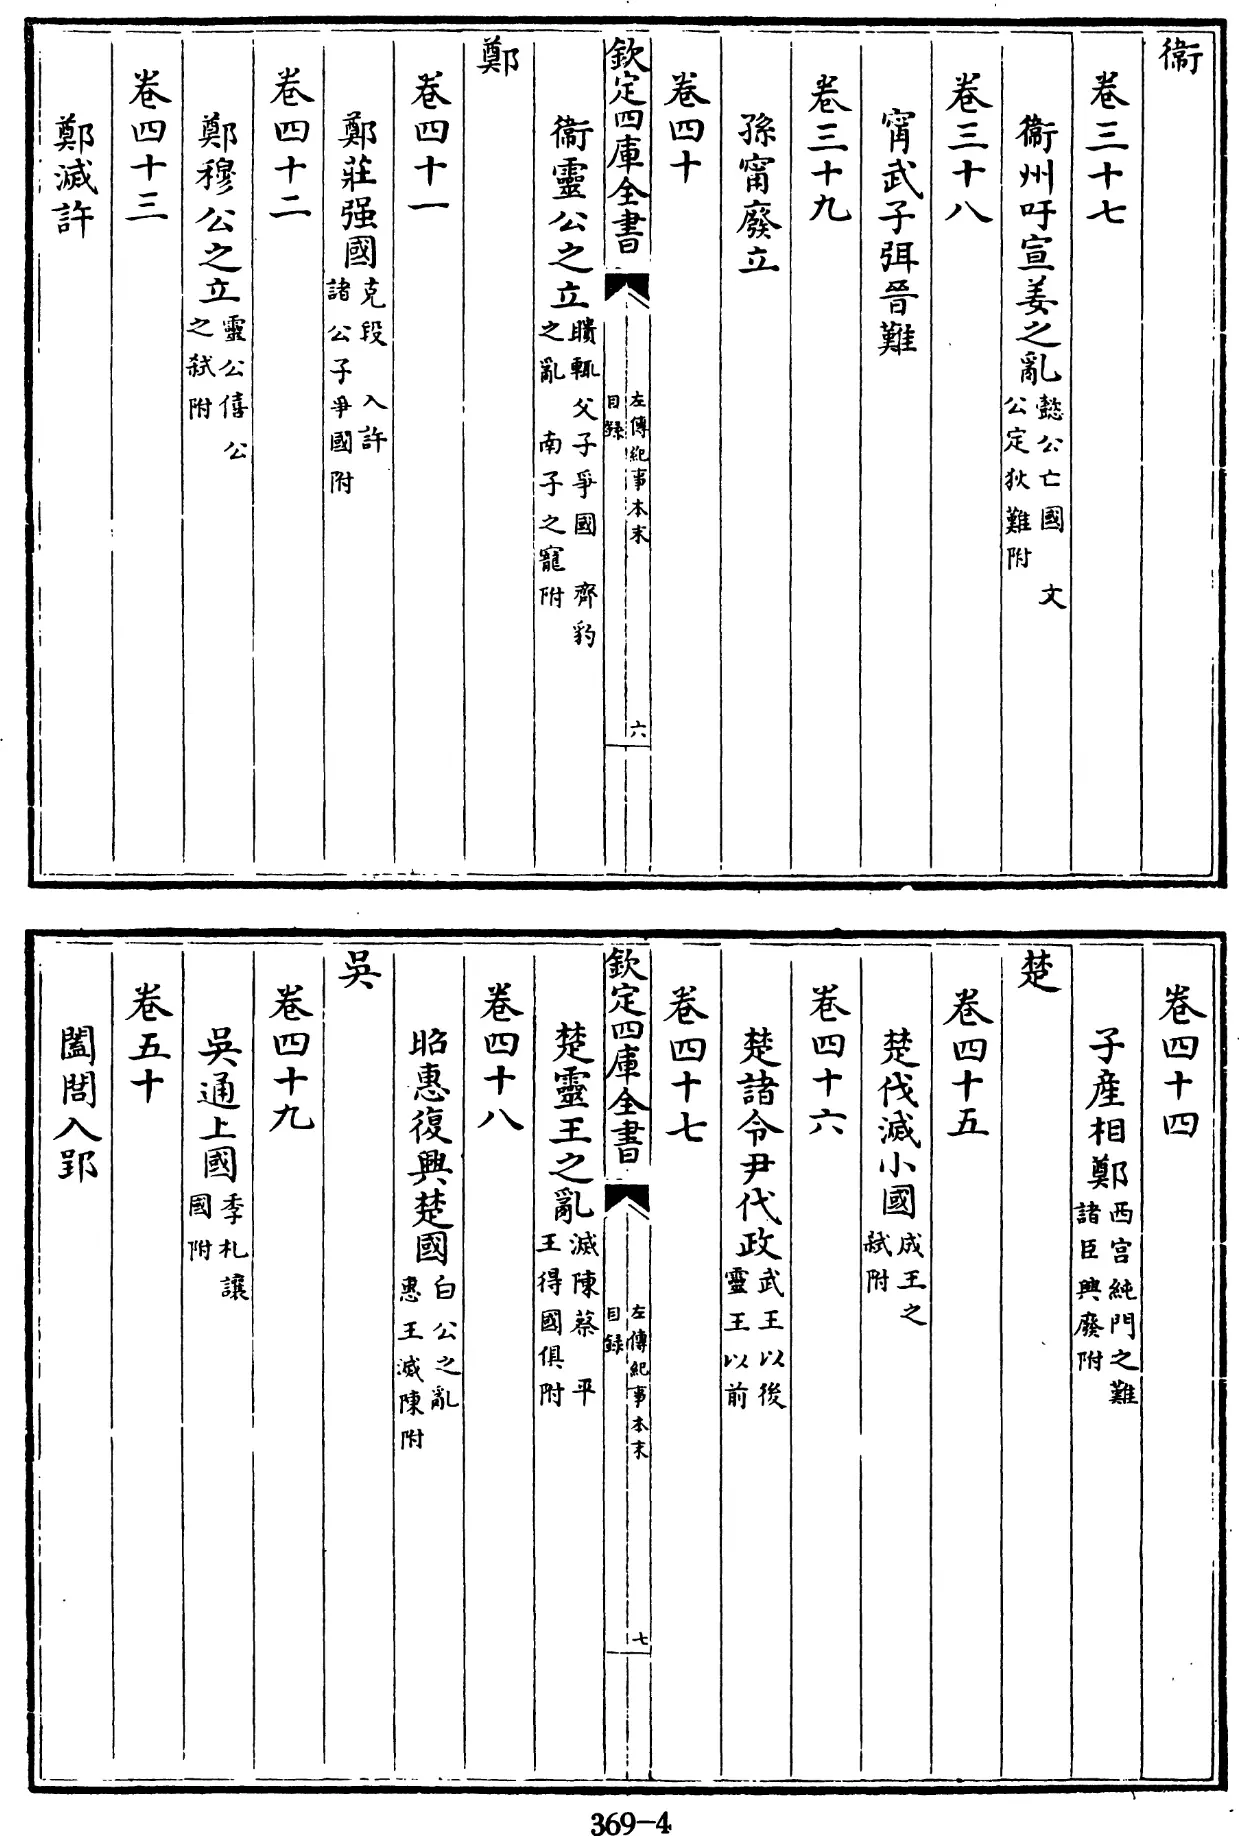 衞
卷三十七
衞州吁宣姜之亂懿公亡國 文
公定狄難附
卷三十八
甯武子弭晉難
卷三十九
孫甯廢立
卷四十
欽定四庫全書
左傳紀事本末
目録
六
衞靈公之立聵輒父子爭國 齊豹
之亂 南子之寵附
鄭
卷四十一
鄭莊强國克段 入許
諸公子爭國附
卷四十二
鄭穆公之立靈公僖公
之弑附
卷四十三
鄭滅許
卷四十四
子産相鄭西宫純門之難
諸臣興廢附
楚
卷四十五
楚伐滅小國成王之
弑附
卷四十六
楚諸令尹代政武王以後
靈王以前
卷四十七
欽定四庫全書
左傳紀事本末
目録
七
楚靈王之亂滅陳蔡 平
王得國俱附
卷四十八
昭惠復興楚國白公之亂
惠王滅陳附
吳
卷四十九
吳通上國季札讓
國附
卷五十
闔閭入郢
369-4